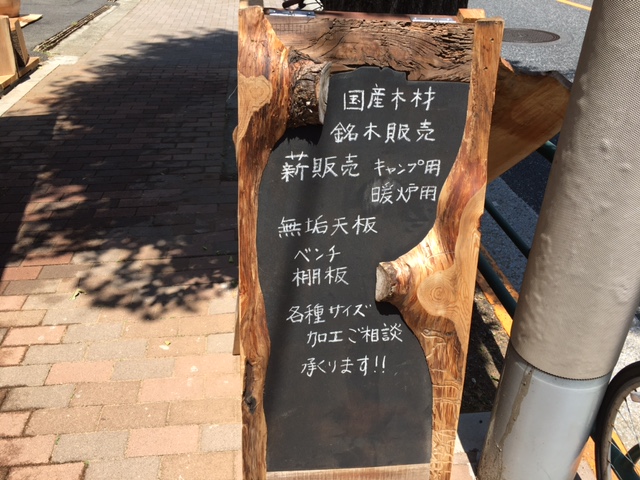 国産木材
銘木販売
薪販売 キャンプ用
暖炉用
無垢天板
ベンチ
棚板
各種サイズ
加工ご相談
承ります!!